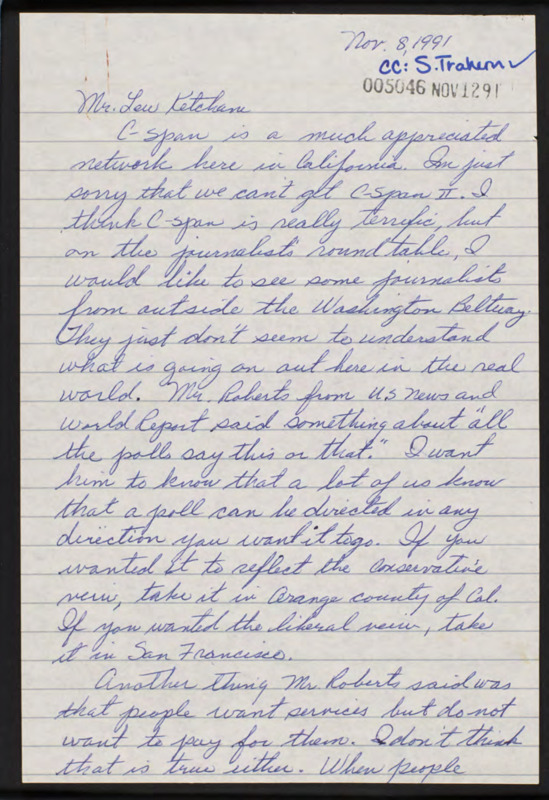 Nov. 8, 1991
cc: S. Trahern ✓
005046 NOV 12 91
Mr. Lew Ketcham
C-span is a much appreciated
network here in California. Im just
sorry that we can't get C-span II. I
think C-span is really terrific, but
on the journalist's round table, I
would like to see some journalists
from outside the Washington Beltway.
They just don't seem to understand
what is going on out here in the real
world. Mr. Roberts from U.S News and
World Report said something about "all
the polls say this or that." I want
him to know that a lot of us know
that a poll can be directed in any
direction you want it to go. If you
wanted it to reflect the conservative
veiw, take it in Orange county of Cal.
If you wanted the liberal veiw, take
it in San Francisco.
Another thing Mr. Roberts said was
that people want services but do not
want to pay for them. I don't think
that is true either. When people